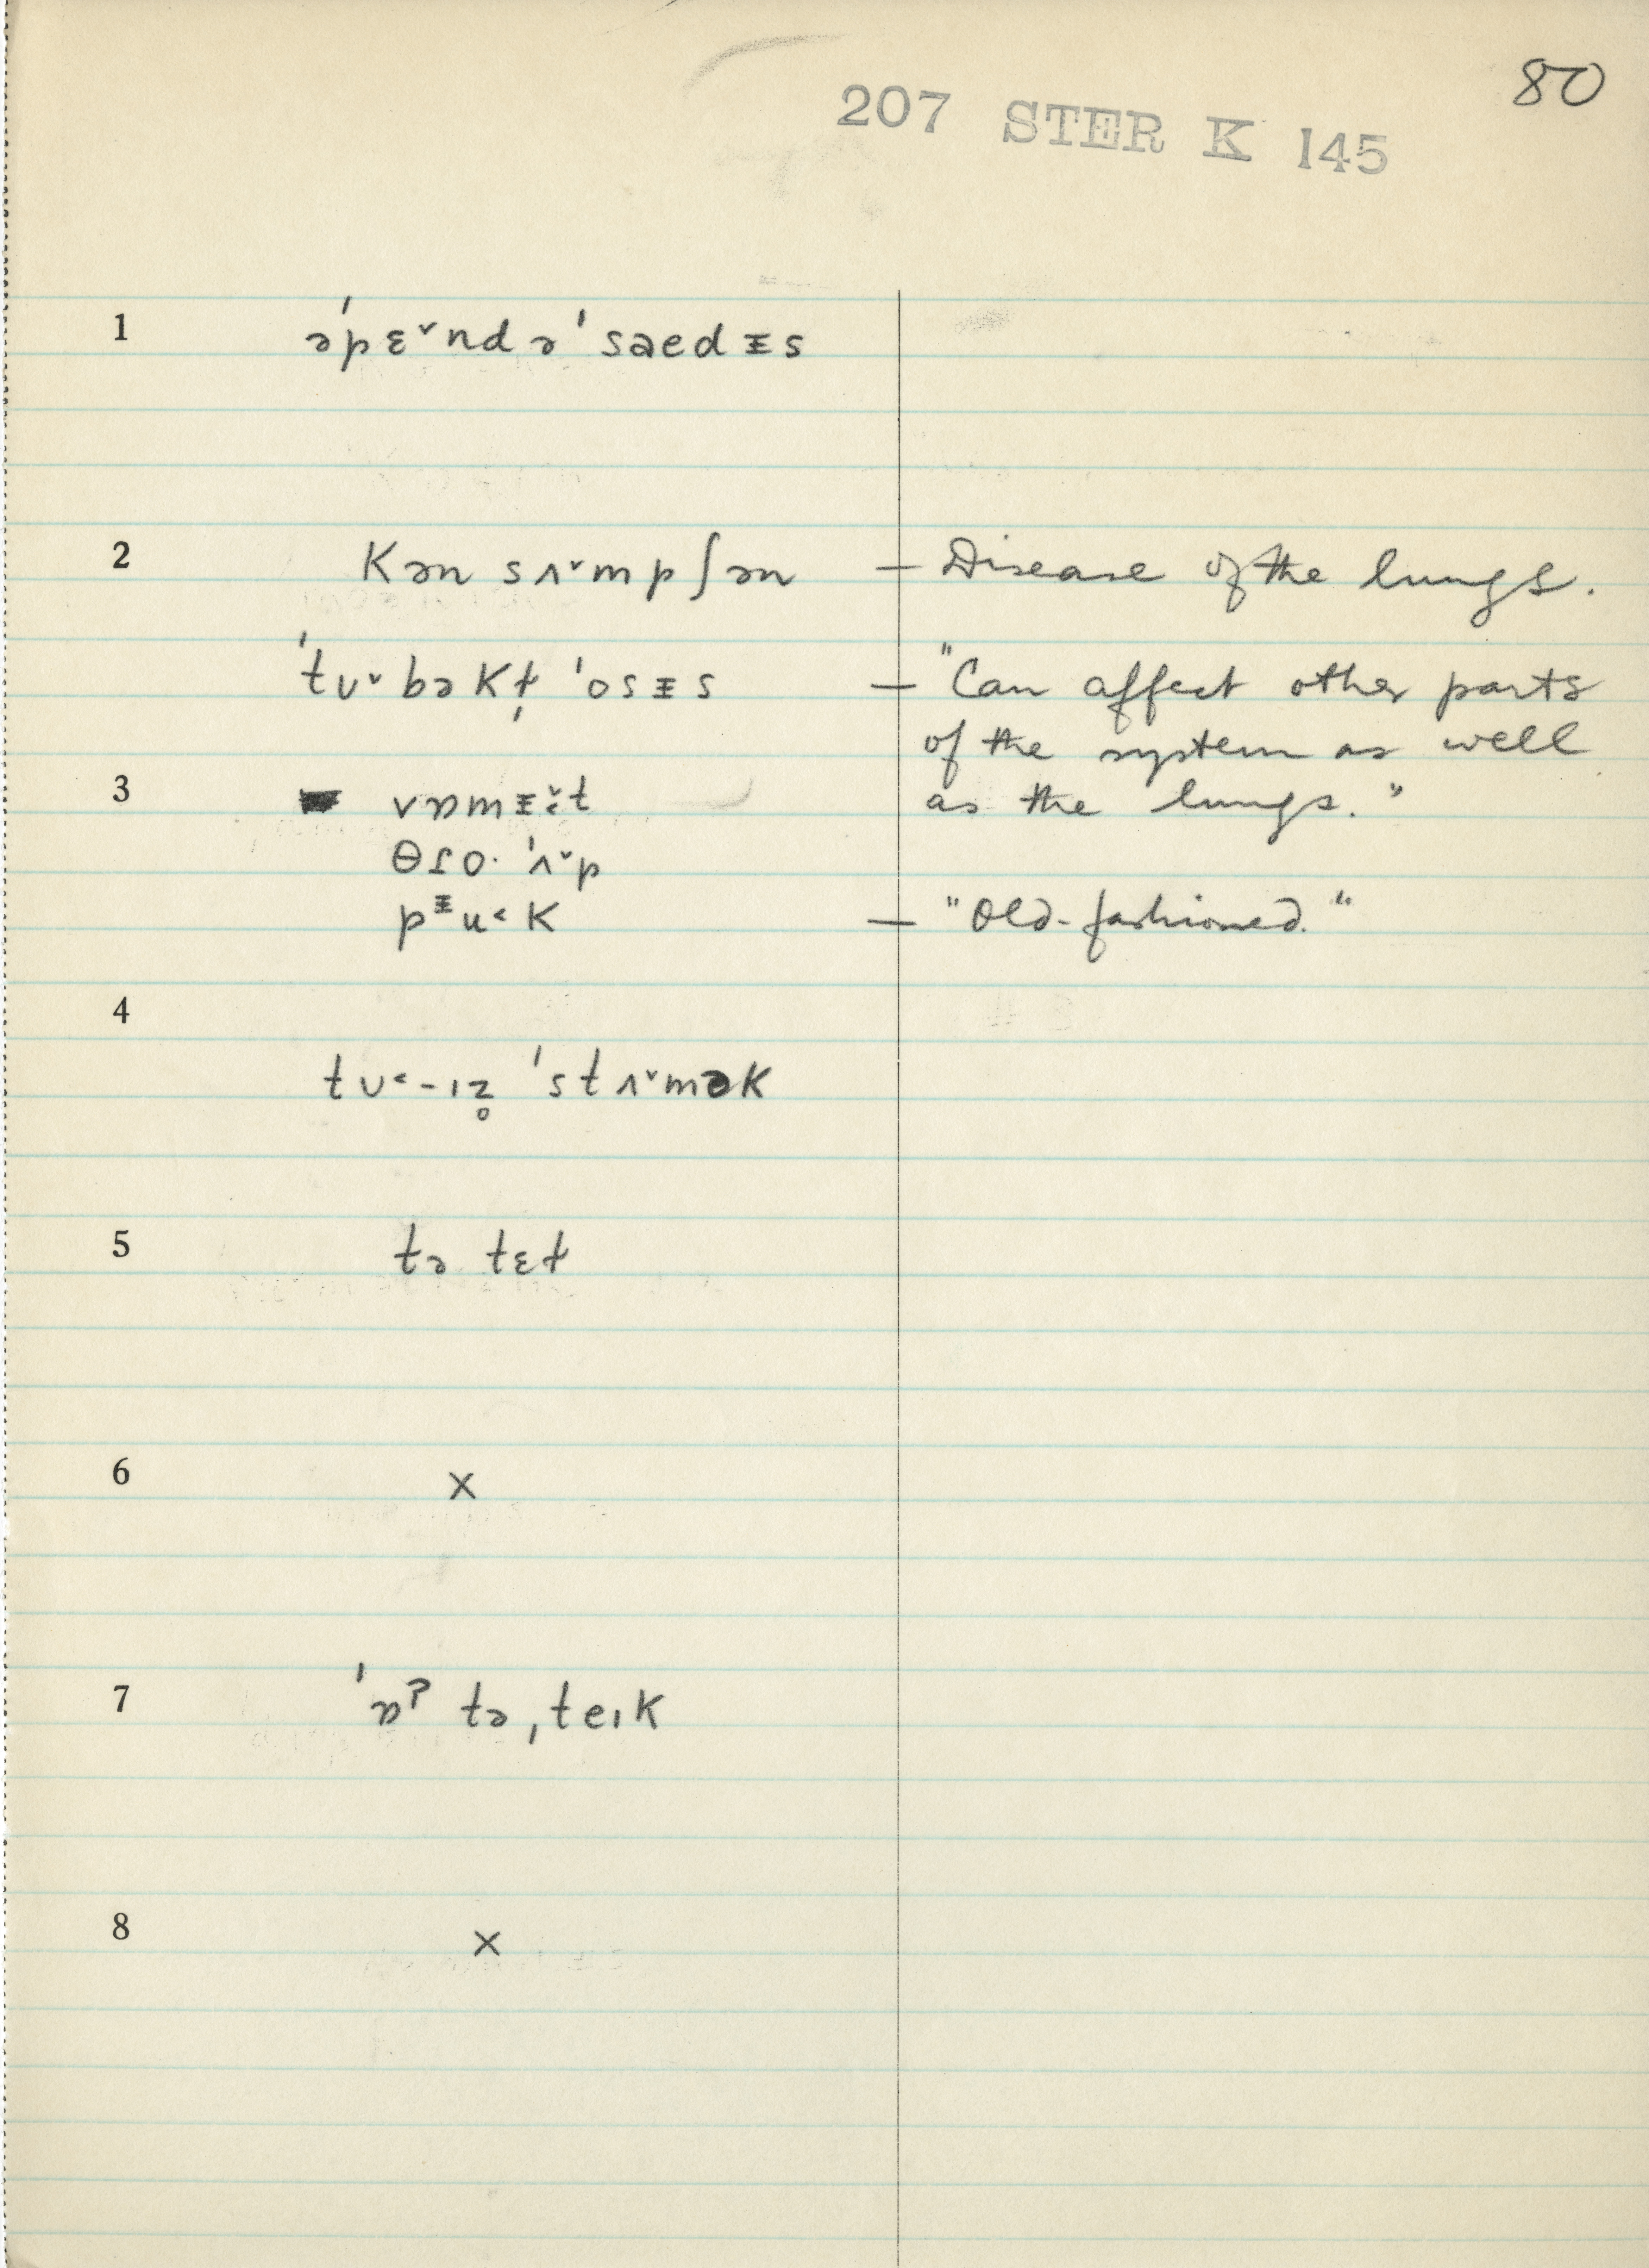 80
207 STER K 145
1 əˈpɛ˅ndəˈsaedᵻs
2 kən sʌ˅mpʃən — Disease of the lungs.
ˈtʊ˅bəkɫ̩ ˈosᵻs — "Can affect other parts
of the system as well
3 vɒmᵻ˅t as the lungs."
ˈʌ˅p
pᵻu˂k — "Old-fashioned."
4
tʊ˂-ɪz̥ ˈstʌ˅mək
5 tə tɛɫ
6 x
7 ˈɒʔ təˌteɪk
8 x